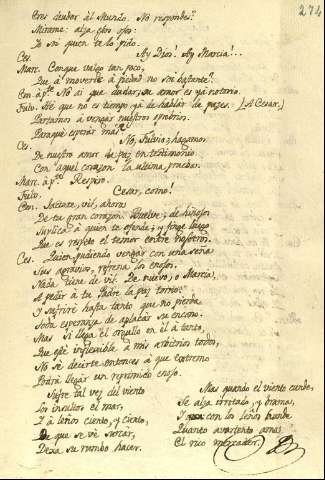 274
Eres deudor al Mundo. No respondes?
Mirame: alza esos ojos:
Yo soi quien te lo pido.
Ces. Ay Dios! Ay Marcia!...
Marc. Conque valgo tan poco,
Que a moverte à piedad no soi bastante?
Em. à pte. No ai que dudar, su amor es ya notorio.
Fulv. que no es tiempo ya de hablar de pazes. (A Cesar.)
à vengar nuestros oprobrios.
Paraque esperar mas?
Ces. No, Fulvio; hagamos
De nuestro amor de paz en testimonio
Con aquel corazon la ultima prueba.
Marc. à pte. Respiro.
Fulv. Cesar, como!
Em. vil, ahora
De tu gran corazon. Vuelve; de hinojos
Suplica à quien te ofende; y finge luego
Que es respeto el temor entre nosotros.
Ces. Quien pudiendo vengar con una seña
Sus agravios, refrena los enojos,
Nada tiene de vil. De nuevo, o Marcia,
A pedir à tu Padre la paz torno:
Y sufriré hasta tanto que no pierda
Toda esperanza de aplacar su encono.
Mas si llega el orgullo en él à tanto,
Que esté inflexible à mis arbitrios todos,
No sé decirte entonces à que extremo
Podrá llegar un reprimido enojo.
Sufre tal vez del viento
Los insultos el mar,
Y à leños ciento, y ciento,
De que se vé surcar,
Dexa su rumbo hacer.
Mas quando el viento cunde,
Se alza irritado, y brama,
Y con los leños hunde
Quanto avariento ama
El rico mercader.